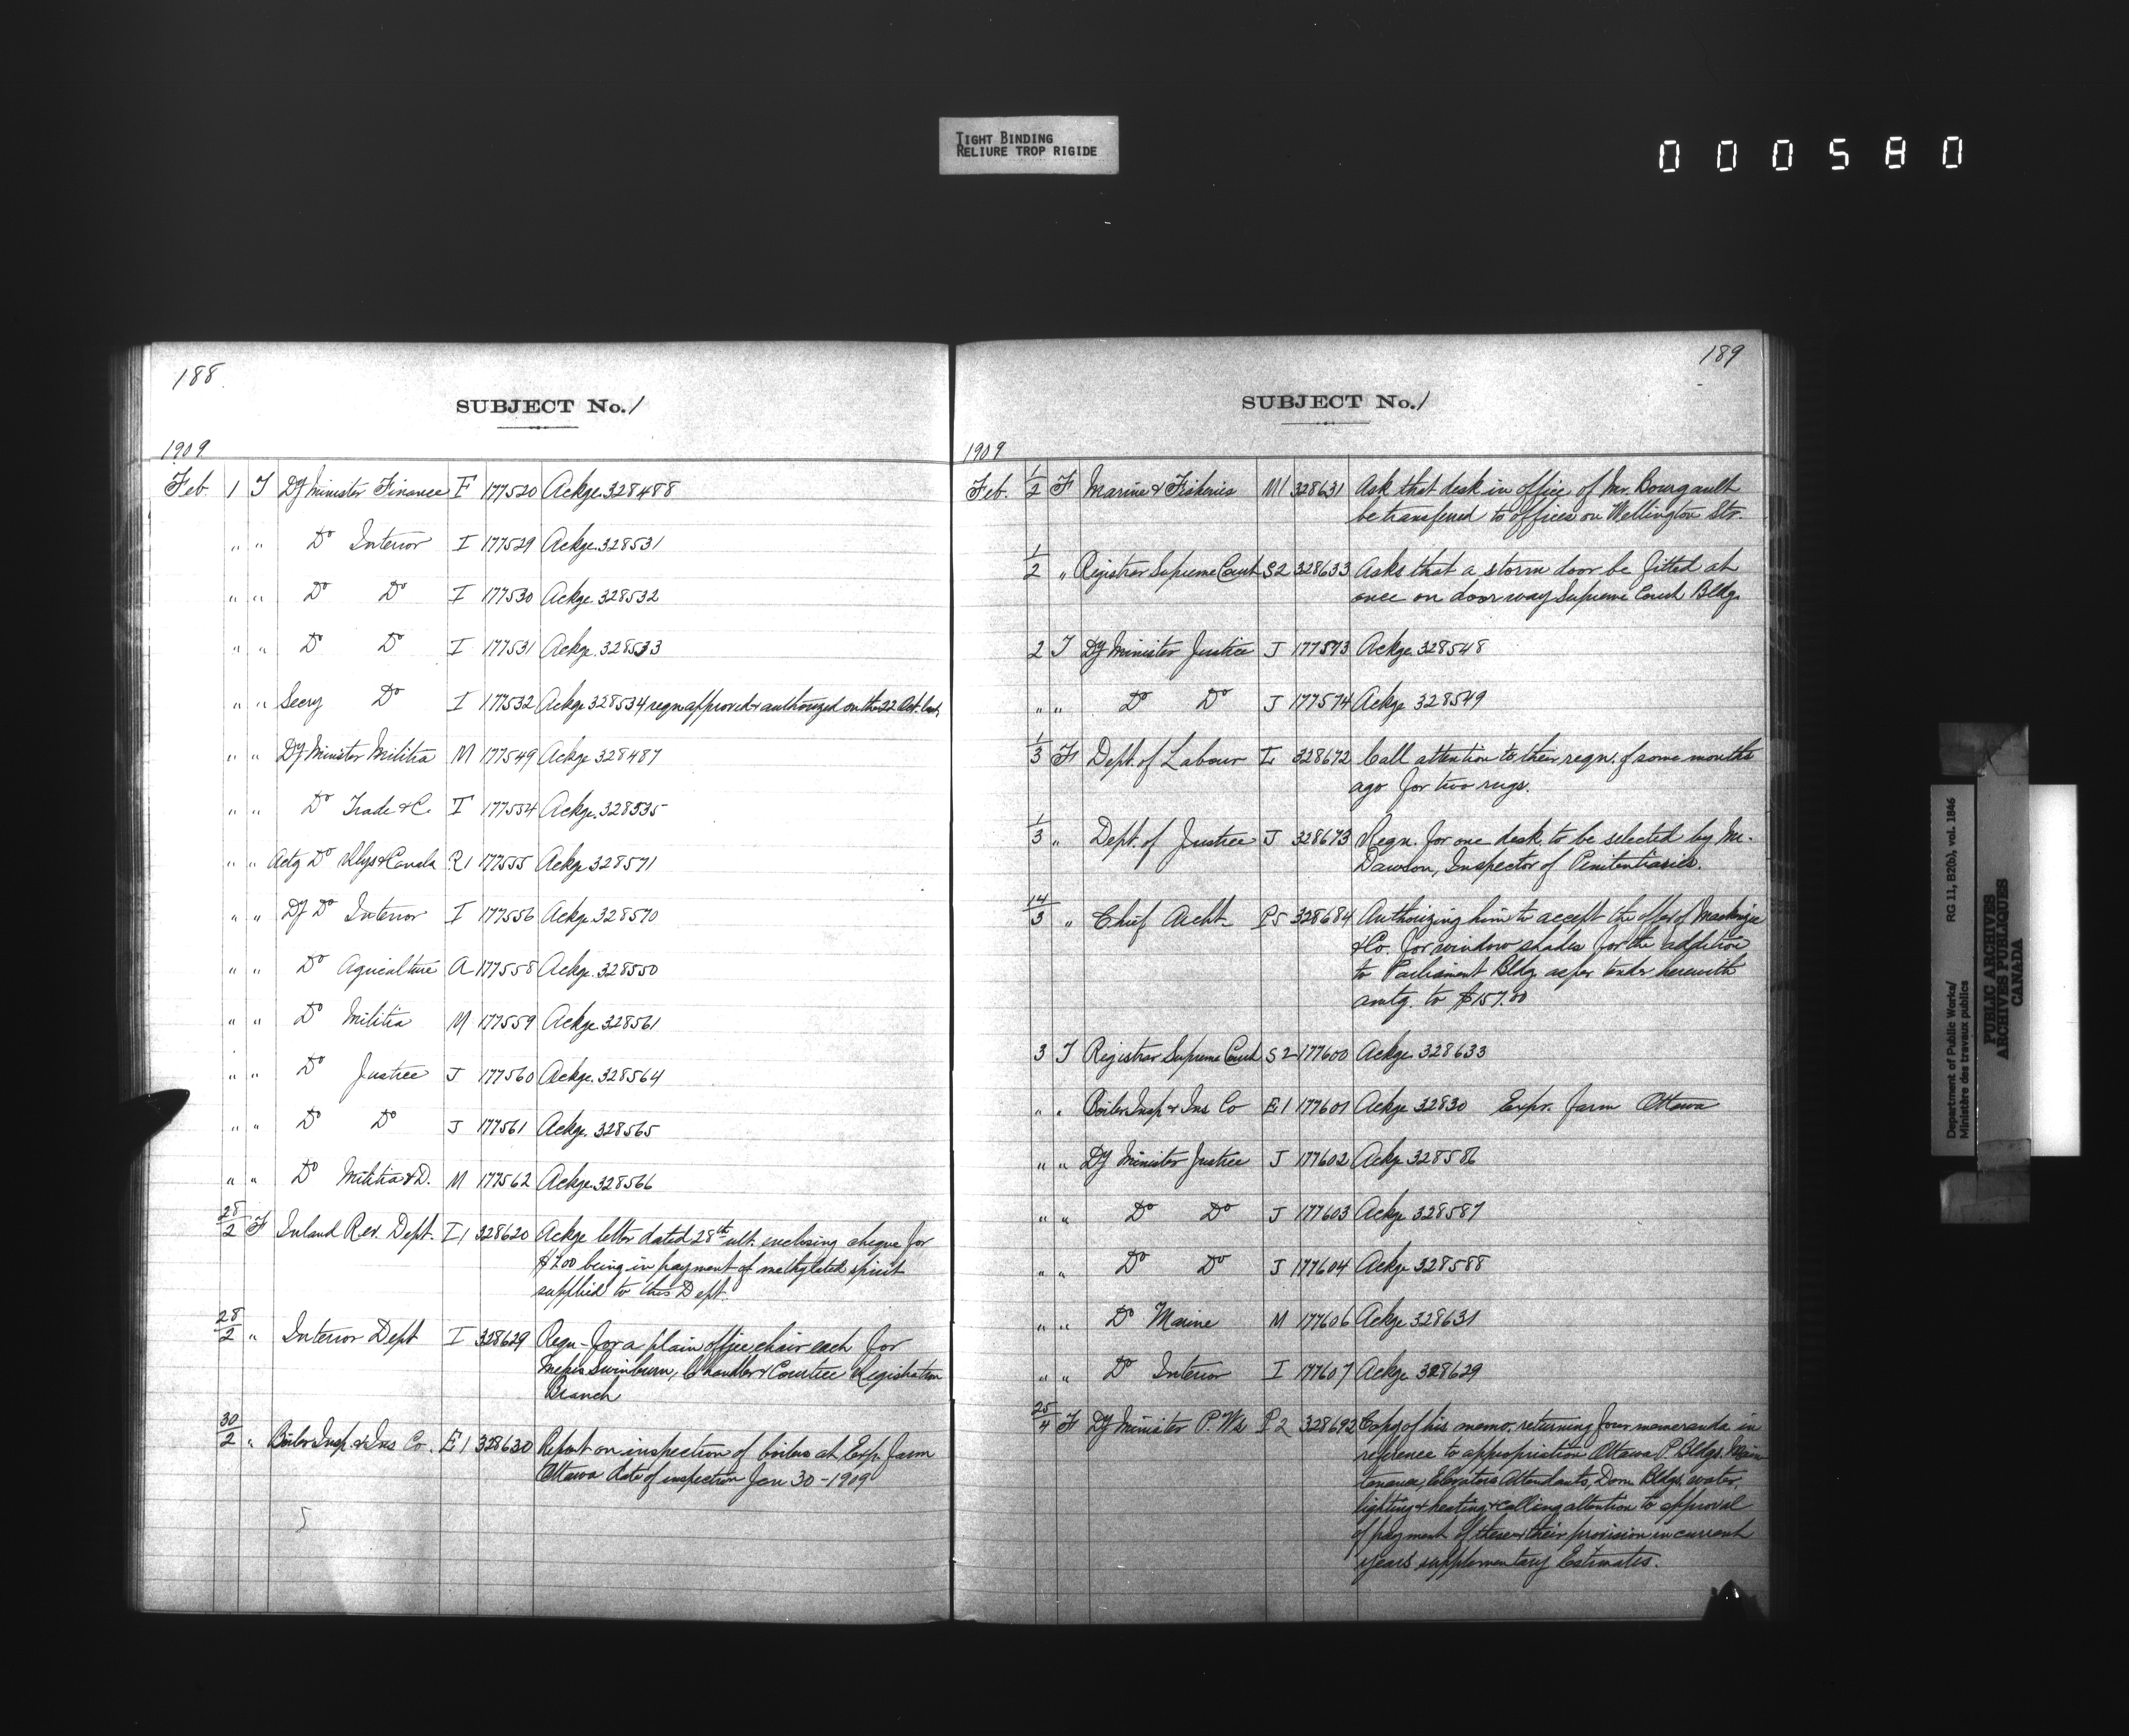 TIGHT BINDING
RELIURE TROP RIGIDE
000580
188
SUBJECT No. 1
1909
Feb. 1 T Dy Minister Finance F 177520 Ackge 328488
" " Do Interior I 177529 Ackge 328531
" " Do Do I 177530 Ackge 328532
" " Do Do I 177531 Ackge 328533
" " Secry Do I 177532 Ackge 328534 reqn approved & authorized on the 22 Oct. last
" " Dy Minister Militia M 177549 Ackge 328487
" " Do Trade & C. T 177554 Ackge 328535
" " Actg Do Rlys & Canals R1 177555 Ackge 328571
" " Dy Do Interior I 177556 Ackge 328570
" " Do Agriculture A 177558 Ackge 328550
" " Do Militia M 177559 Ackge 328561
" " Do Justice J 177560 Ackge 328564
" " Do Do J 177561 Ackge 328565
" " Do Militia & D. M 177562 Ackge 328566
28/2 F Inland Rev. Dept. I1 328620 Ackge letter dated 28th ult. enclosing cheque for
$7.00 being in payment of methylated spirit
supplied to this Dept.
28/2 " Interior Dept I 328629 Reqn - for a plain office chair each for
Messrs Swinburn, Chandler & Courtice Registration
Branch
30/2 " Boiler Insp. & Ins Co. E1 328630 Report on inspection of boilers at Exp. Farm
Ottawa date of inspection Jan 30 - 1909
5
189
SUBJECT No. 1
1909
Feb. 1/2 F Marine & Fisheries M1 328631 Ask that desk in office of Mr. Bourgault
be transferred to offices on Wellington Str.
1/2 " Registrar Supreme Court S2 328633 Asks that a storm door be fitted at
once on doorway Supreme Court Bldg
2 T Dy Minister Justice J 177573 Ackge 328548
" " Do Do J 177574 Ackge 328549
1/3 F Dept. of Labour L 328672 Call attention to their reqn. of some months
ago for two rugs.
1/3 " Dept. of Justice J 328673 Reqn. for one desk to be selected by Mr.
Dawson, Inspector of Penitentiaries.
14/3 " Chief Archt. P5 328684 Authorizing him to accept the offer of Mackenzie
& Co. for window shades for the addition
to Parliament Bldg as per tender herewith
amtg. to $157.00
3 T Registrar Supreme Court S2 177600 Ackge 328633
" " Boiler Insp & Ins Co E1 177601 Ackge 32830 Expr. Farm Ottawa
" " Dy Minister Justice J 177602 Ackge 328586
" " Do Do J 177603 Ackge 328587
" " Do Do J 177604 Ackge 328588
" " Do Marine M 177606 Ackge 328631
" " Do Interior I 177607 Ackge 328629
25/4 F Dy Minister P. Wks P2 328692 Copy of his memo, returning four memoranda in
reference to appropriation Ottawa P. Bldgs. Main-
tenance, Elevators Attendants, Dom Bldgs, water,
lighting & heating & calling attention to approval
of payment of these & their provision in current
years supplementary Estimates.
Department of Public Works/ RG 11, B2(b), vol. 1846
Ministère des travaux publics
PUBLIC ARCHIVES
ARCHIVES PUBLIQUES
CANADA